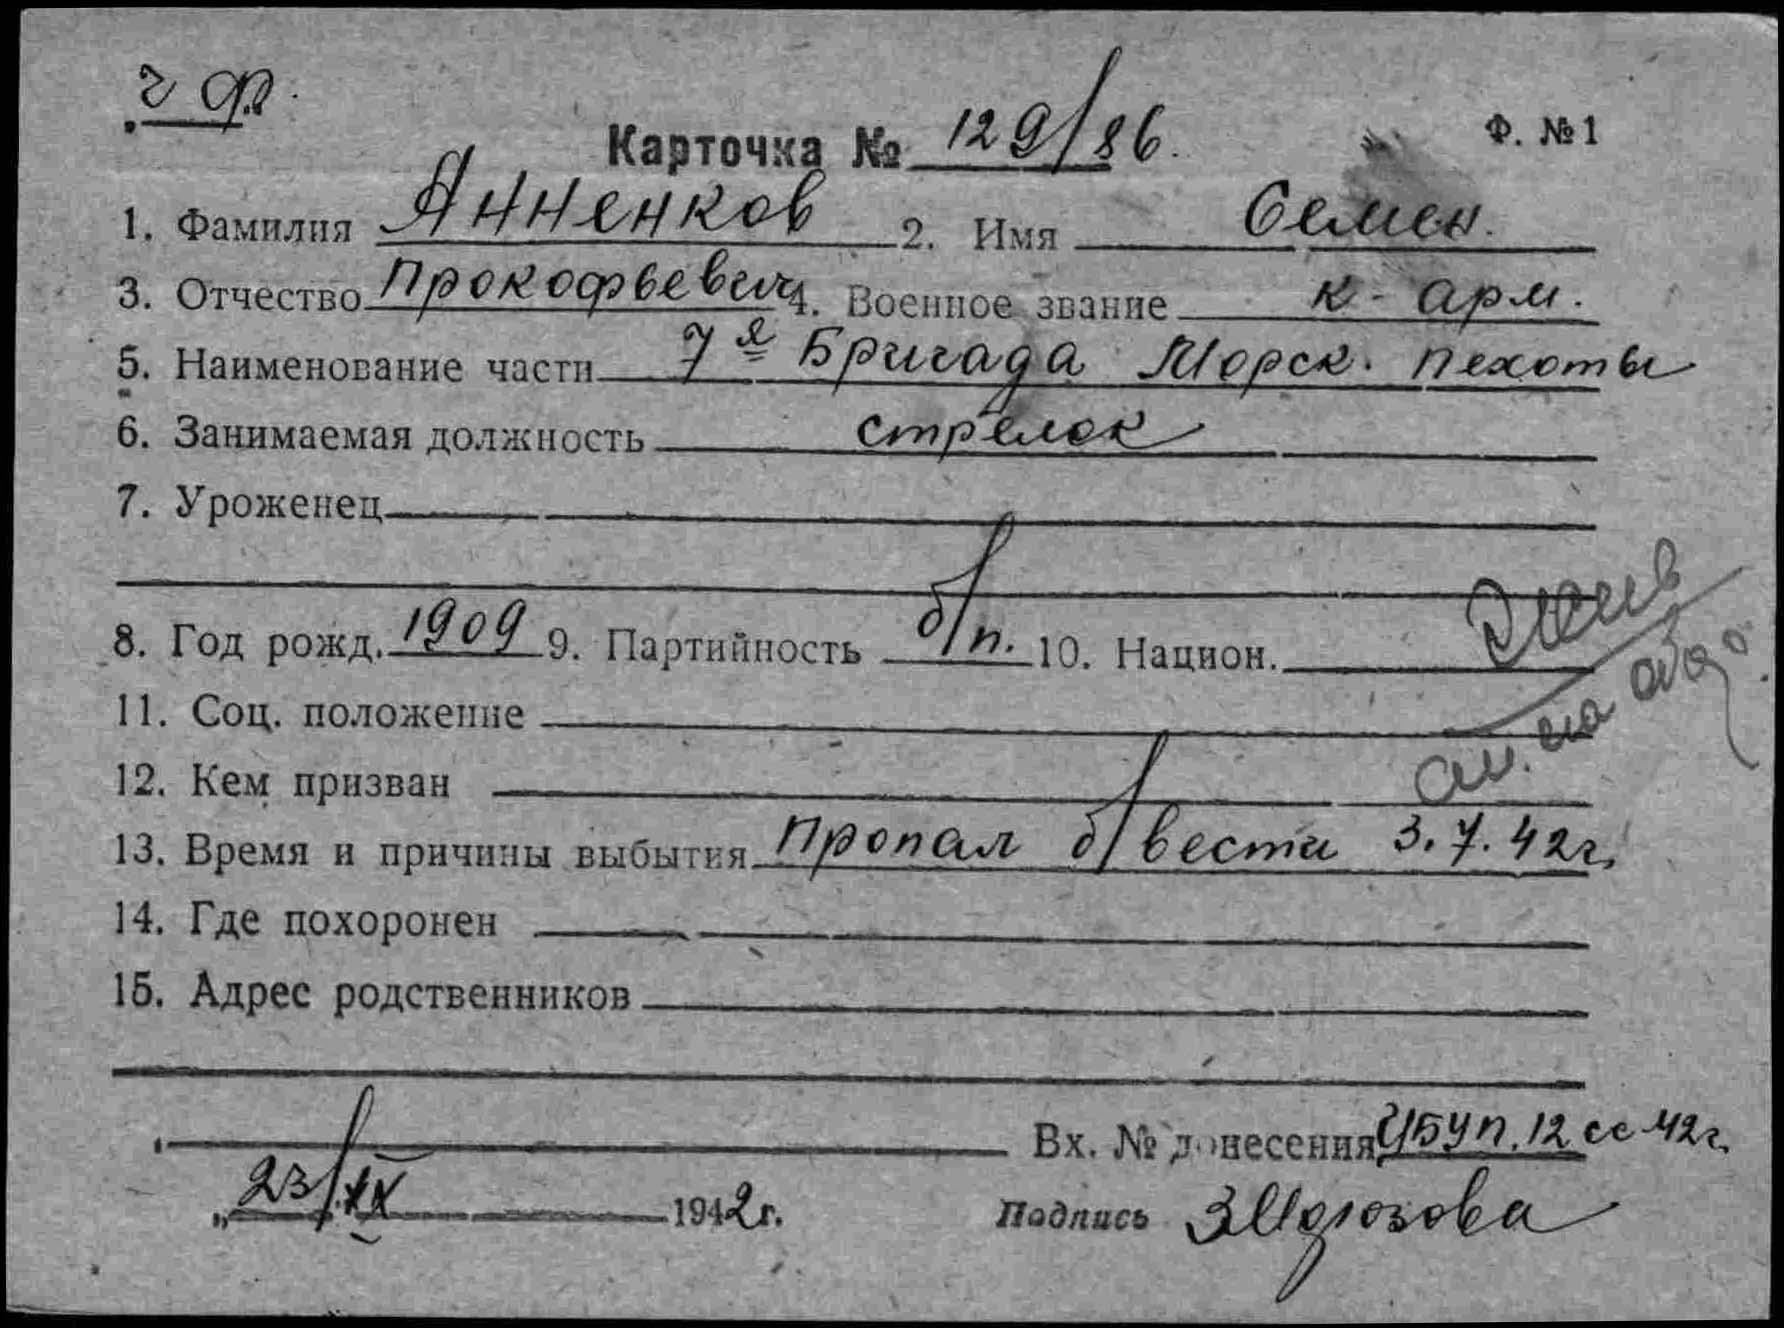 ч ф.
Карточка № 129/86.
Ф. № 1
1. Фамилия Анненков 2. Имя Семен.
3. Отчество Прокофьевич 4. Военное звание к-арм.
5. Наименование части 7я Бригада Морск. пехоты
6. Занимаемая должность стрелок
7. Уроженец
8. Год рожд. 1909 9. Партийность б/п. 10. Национ.
Жив
см. на обо
11. Соц. положение
12. Кем призван
13. Время и причины выбытия Пропал б/вести 3.7.42г.
14. Где похоронен
15. Адрес родственников
Вх. № донесения ЦБУп. 12 сс 42г.
„23/IX 1942г. Подпись ЗМорозова